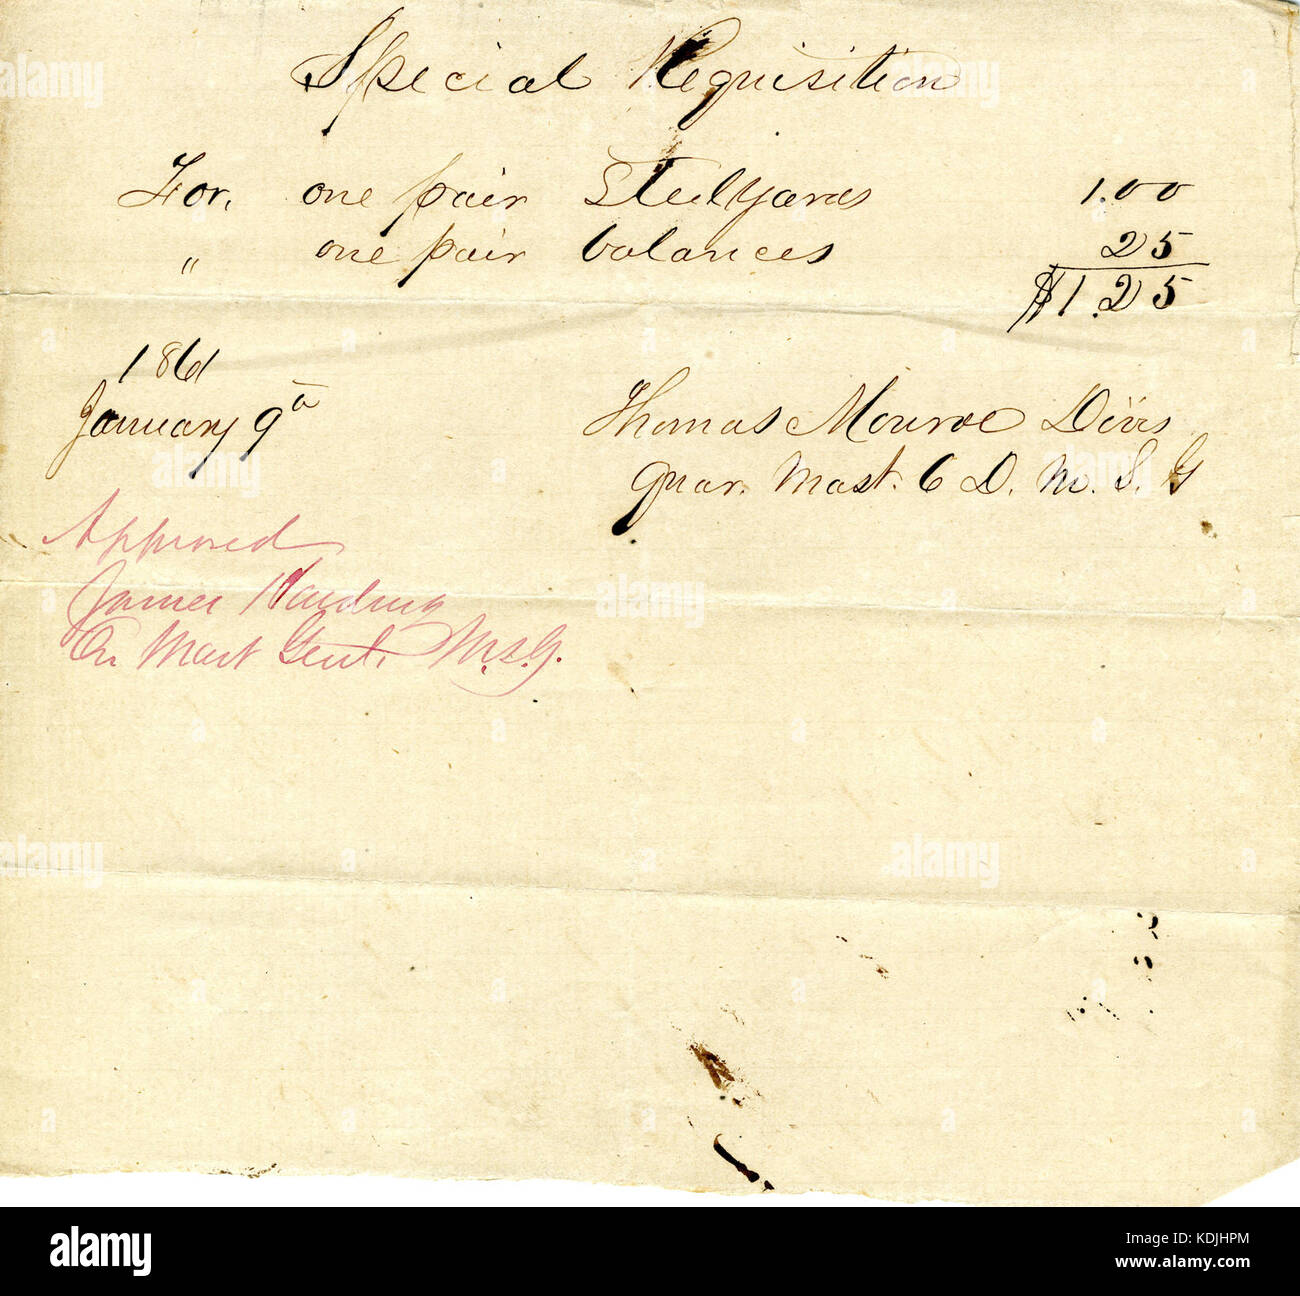 Special Requisition
For, one pair Steelyards 1.00
" one pair balances 25
$1.25
1861
January 9th
Thomas Monroe
Quar. Mast. 6 D. M. S. G
Approved
James Harding
Qr Mast Genl. M.S.G.
alamy
Image ID: KDJHPM
www.alamy.com